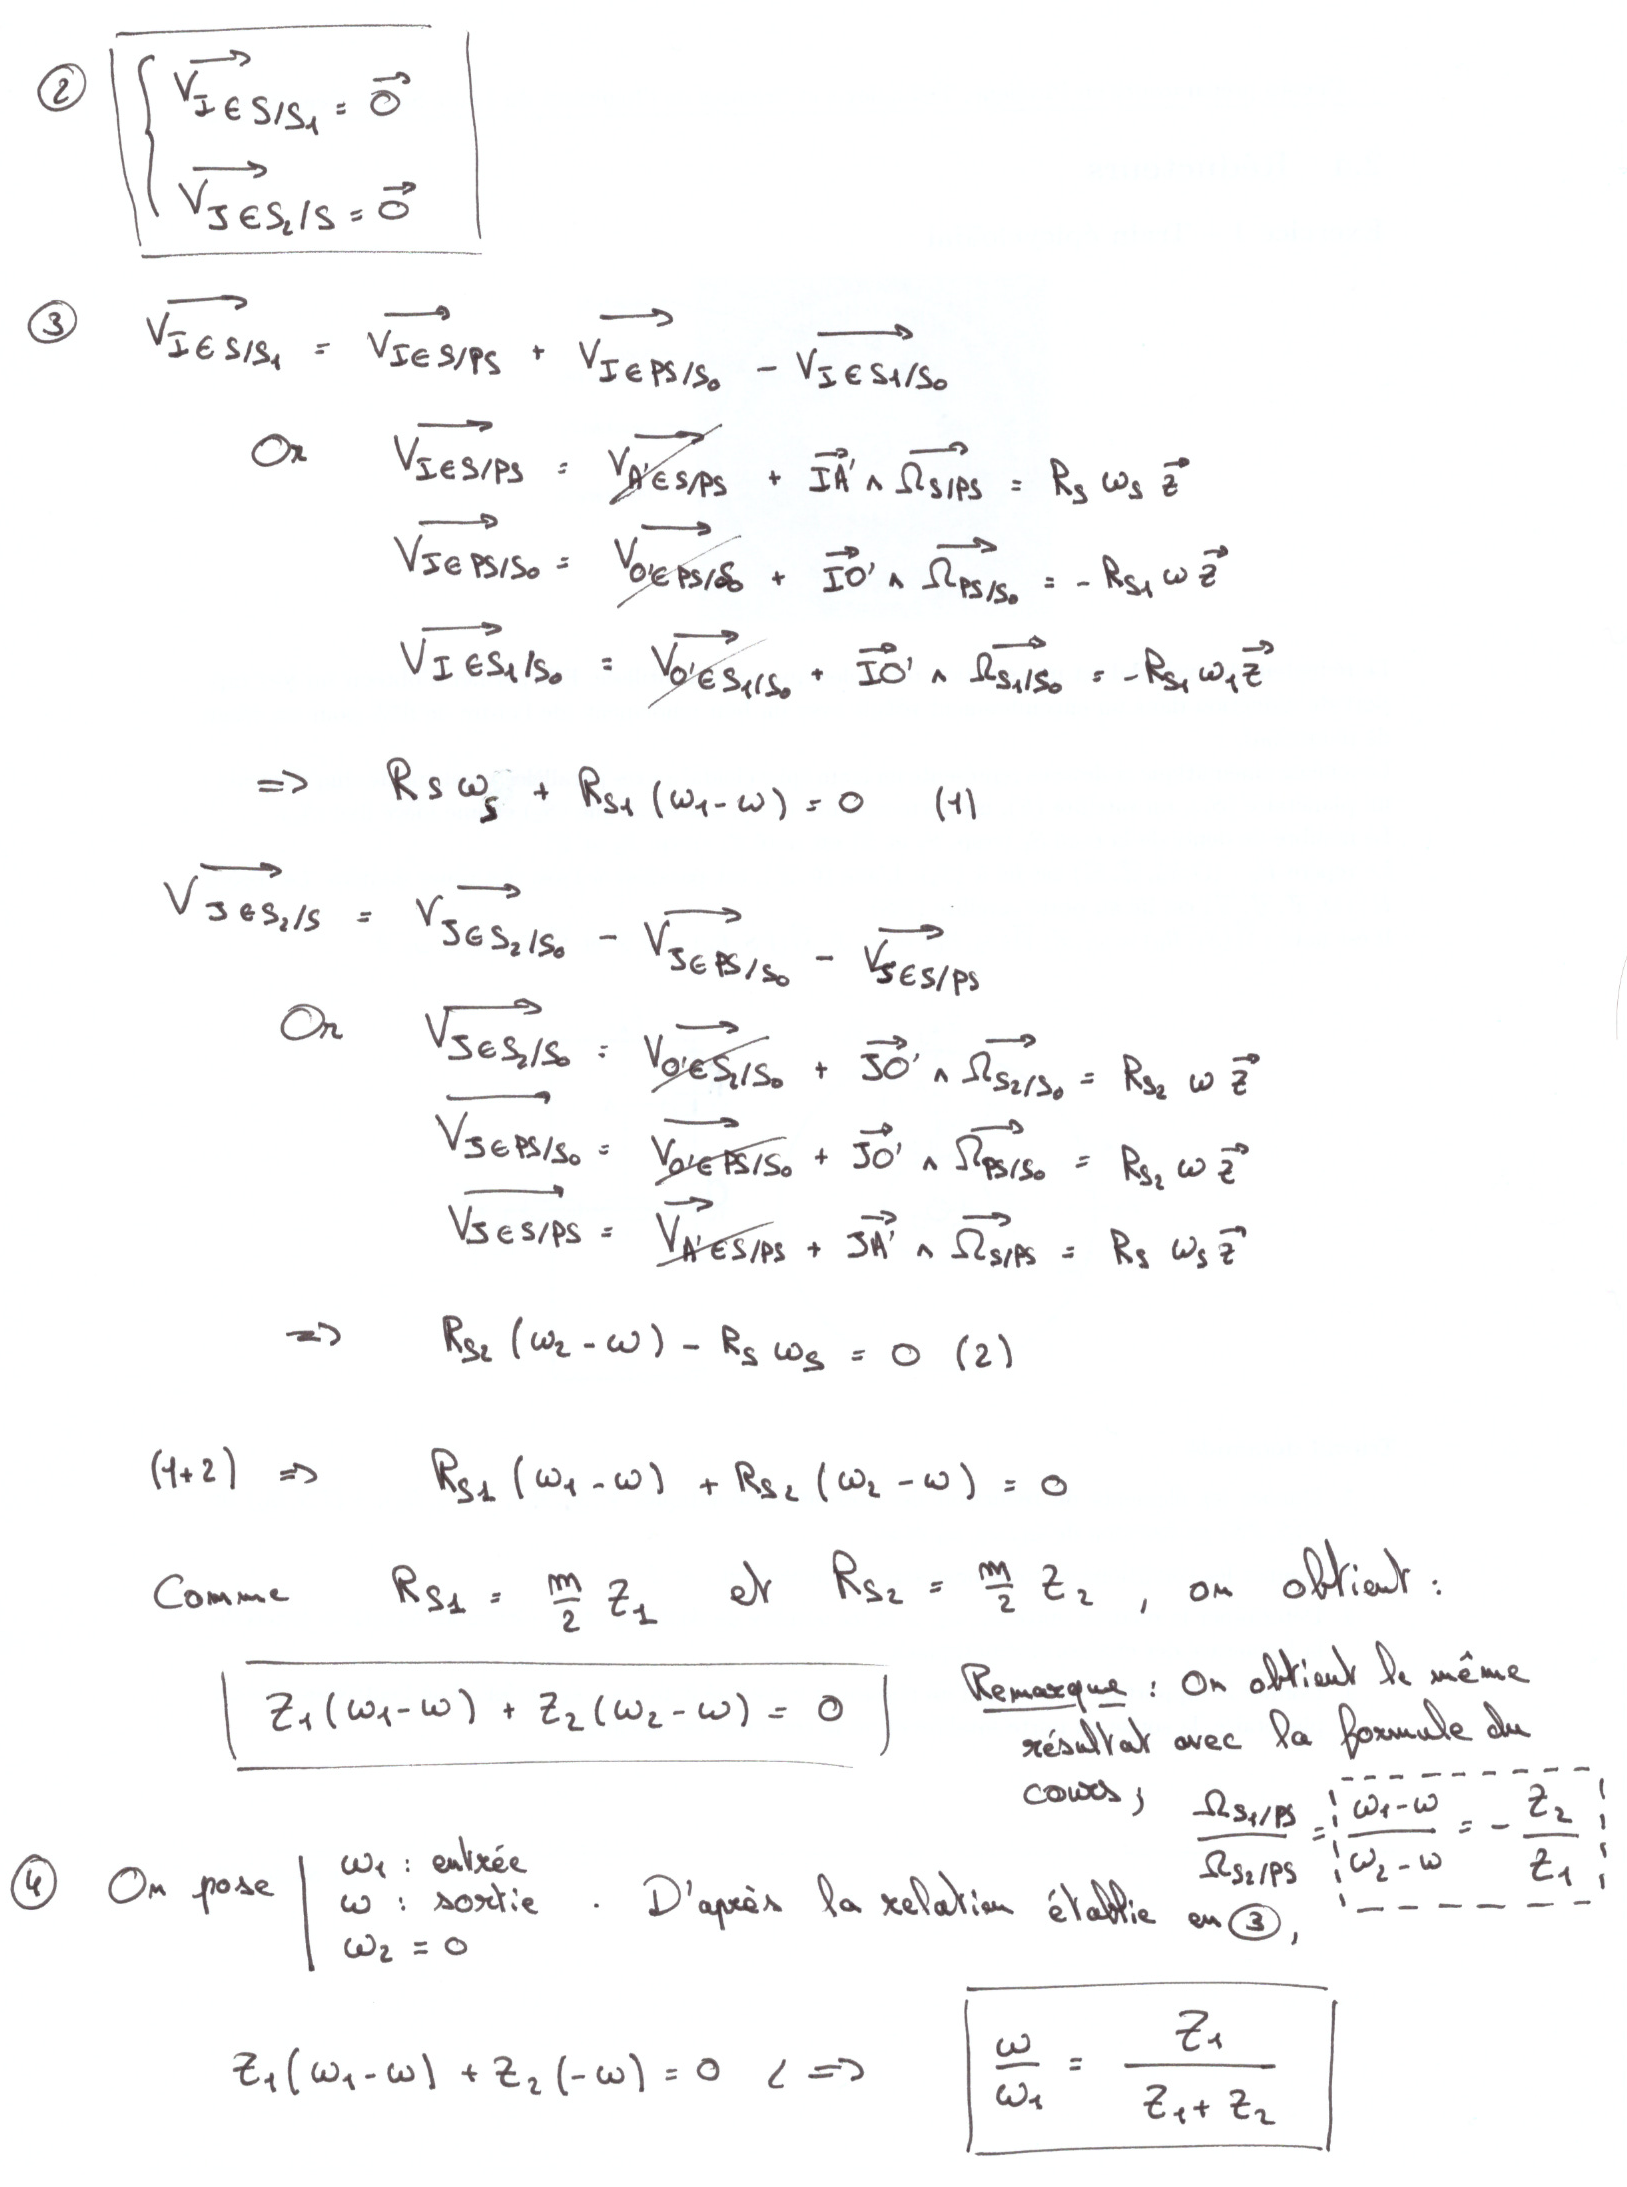 ② { V⃗_{I∈S/S₁} = 0⃗
V⃗_{J∈S₂/S} = 0⃗
③ V⃗_{I∈S/S₁} = V⃗_{I∈S/PS} + V⃗_{I∈PS/S₀} - V⃗_{I∈S₁/S₀}
Or V⃗_{I∈S/PS} = V⃗_{A'∈S/PS} + IA'⃗ ∧ Ω⃗_{S/PS} = R_S ω_S z⃗
V⃗_{I∈PS/S₀} = V⃗_{O'∈PS/S₀} + IO'⃗ ∧ Ω⃗_{PS/S₀} = - R_{S1} ω z⃗
V⃗_{I∈S₁/S₀} = V⃗_{O'∈S₁/S₀} + IO'⃗ ∧ Ω⃗_{S₁/S₀} = - R_{S1} ω₁ z⃗
=> R_S ω_S + R_{S1} (ω₁ - ω) = 0 (1)
V⃗_{J∈S₂/S} = V⃗_{J∈S₂/S₀} - V⃗_{J∈PS/S₀} - V⃗_{J∈S/PS}
Or V⃗_{J∈S₂/S₀} = V⃗_{O'∈S₂/S₀} + JO'⃗ ∧ Ω⃗_{S₂/S₀} = R_{S2} ω z⃗
V⃗_{J∈PS/S₀} = V⃗_{O'∈PS/S₀} + JO'⃗ ∧ Ω⃗_{PS/S₀} = R_{S2} ω z⃗
V⃗_{J∈S/PS} = V⃗_{A'∈S/PS} + JA'⃗ ∧ Ω⃗_{S/PS} = R_S ω_S z⃗
=> R_{S2} (ω₂ - ω) - R_S ω_S = 0 (2)
(1+2) => R_{S1} (ω₁ - ω) + R_{S2} (ω₂ - ω) = 0
Comme R_{S1} = m/2 Z₁ et R_{S2} = m/2 Z₂ , on obtient :
Z₁ (ω₁ - ω) + Z₂ (ω₂ - ω) = 0
Remarque : On obtient le même
résultat avec la formule du
cours ; Ω_{S1/PS} / Ω_{S2/PS} = (ω₁ - ω) / (ω₂ - ω) = - Z₂ / Z₁
④ On pose | ω₁ : entrée
ω : sortie . D'après la relation établie en ③,
ω₂ = 0
Z₁ (ω₁ - ω) + Z₂ (-ω) = 0 <=> ω / ω₁ = Z₁ / (Z₁ + Z₂)